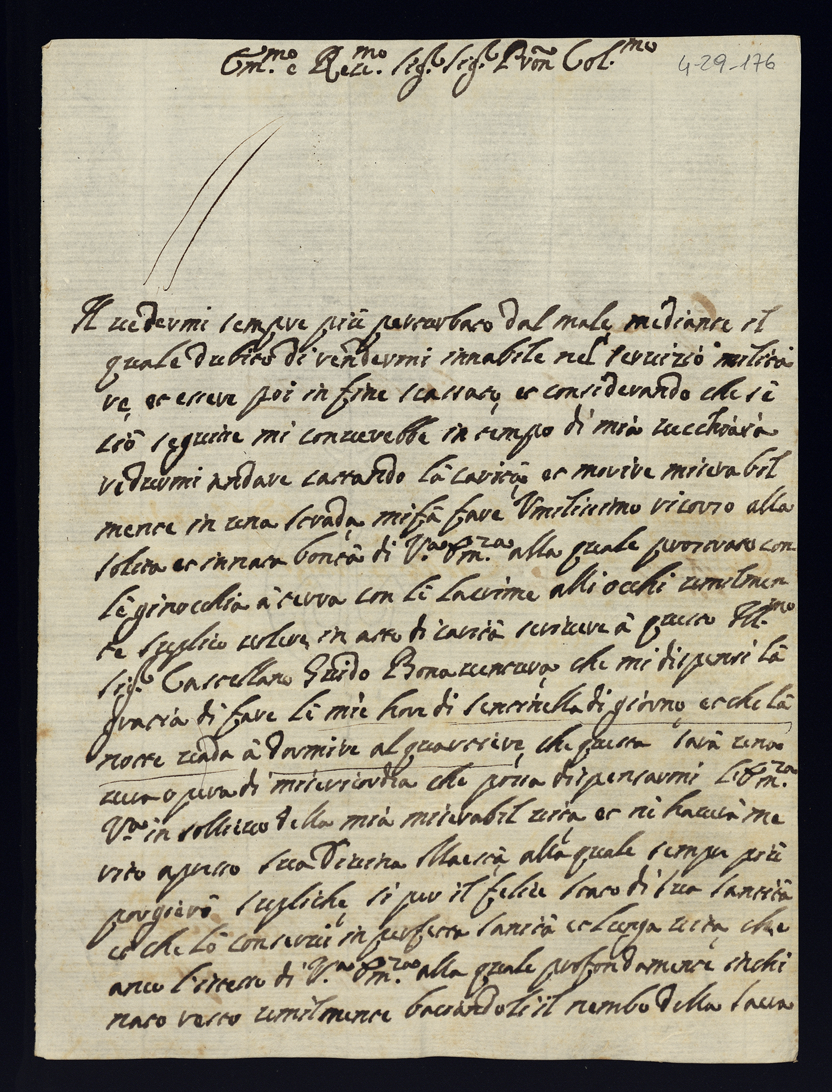 Em.mo e Re.mo Sig.r Sig.r Pron Col.mo
4-29-176
Il uedermi sempre più perturbato dal male, mediante il
quale dubito di rendermi innabile nel seruizio milita
re, et essere poi in fine cassato, et considerando che se
ciò seguisse mi conuerebbe in tempo di mia uecchiaia
redurmi andare cattando la carità, et morire miserabil
mente in una strada, mi fà fare Umilissimo ricorso alla
solita et innata bontà di V.a Em.za alla quale prostrato con
le ginocchia à terra con le lacrime alli occhi umilmen
te suplico uolere, in atto di carità scriuere à questo Ill.mo
Sig.r Castellano Guido Bonauentura, che mi dispensi la
gracia di fare le mie hore di sentinella di giorno, et che la
notte uada à dormire al quartiere, che questa sarà una
uera opera di misericordia che possa dispensarmi L'Em.za
V.a in sollieuo della mia miserabil uita, et ni hauerà me
rito apresso Sua Diuina Maestà, alla quale sempre più
porgierò supliche, si per il felice stato di sua santità
et che lo conserui in perfetta sanità et lunga uita, che
anco l'istesso di V.a Em.za alla quale profondamente inchi
nato resto umilmente baciandoli il nembo della sacra